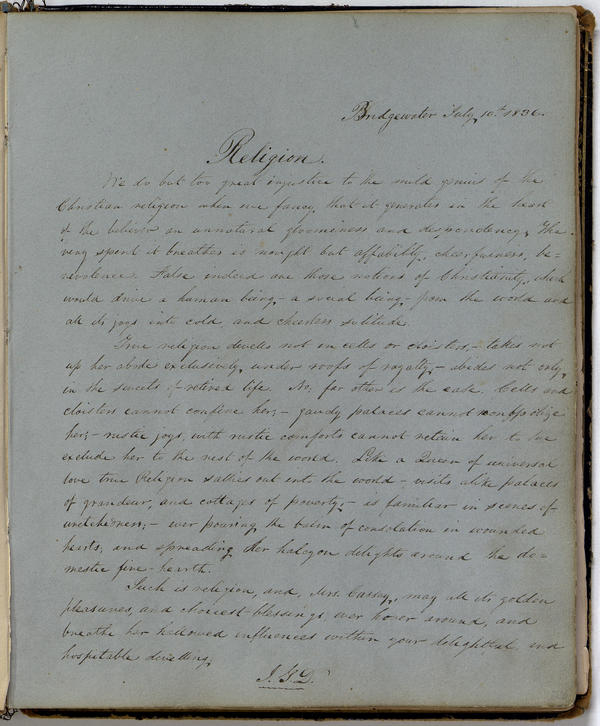 Bridgewater July, 10th 1836.
Religion.
We do but too great injustice to the mild genius of the
Christian religion when we fancy, that it generates in the heart
of the believer an unnatural gloominess and despondency. The
very spirit it breathes is nought but affability, cheerfulness, be=
nevolence. False indeed are those notions of Christianity, which
would drive a human being,- a social being,- from the world and
all its joys into cold, and cheerless solitude.
True religion dwells not in cells or cloisters,- takes not
up her abode exclusively, under roofs of royalty,- abides not only,
in the sweets of retired life. No, far other is the case. Cells and
cloisters cannot confine her;- gaudy palaces cannot monopolize
her;- rustic joys, with rustic comforts cannot retain her to
exclude her to the rest of the world. Like a Queen of universal
love true Religion sallies out into the world - visits alike palaces
of grandeur, and cottages of poverty,- is familiar in scenes of
wretchedness;- ever pouring the balm of consolation in wounded
hearts, and spreading her halcyon delights around the do=
mestic fire-hearth.
Such is religion, and, Mrs. Cassey,, may all its golden
pleasures, and choicest blessings, ever hover around, and
breathe her hallowed influences within your delightful and
hospitable dwelling.